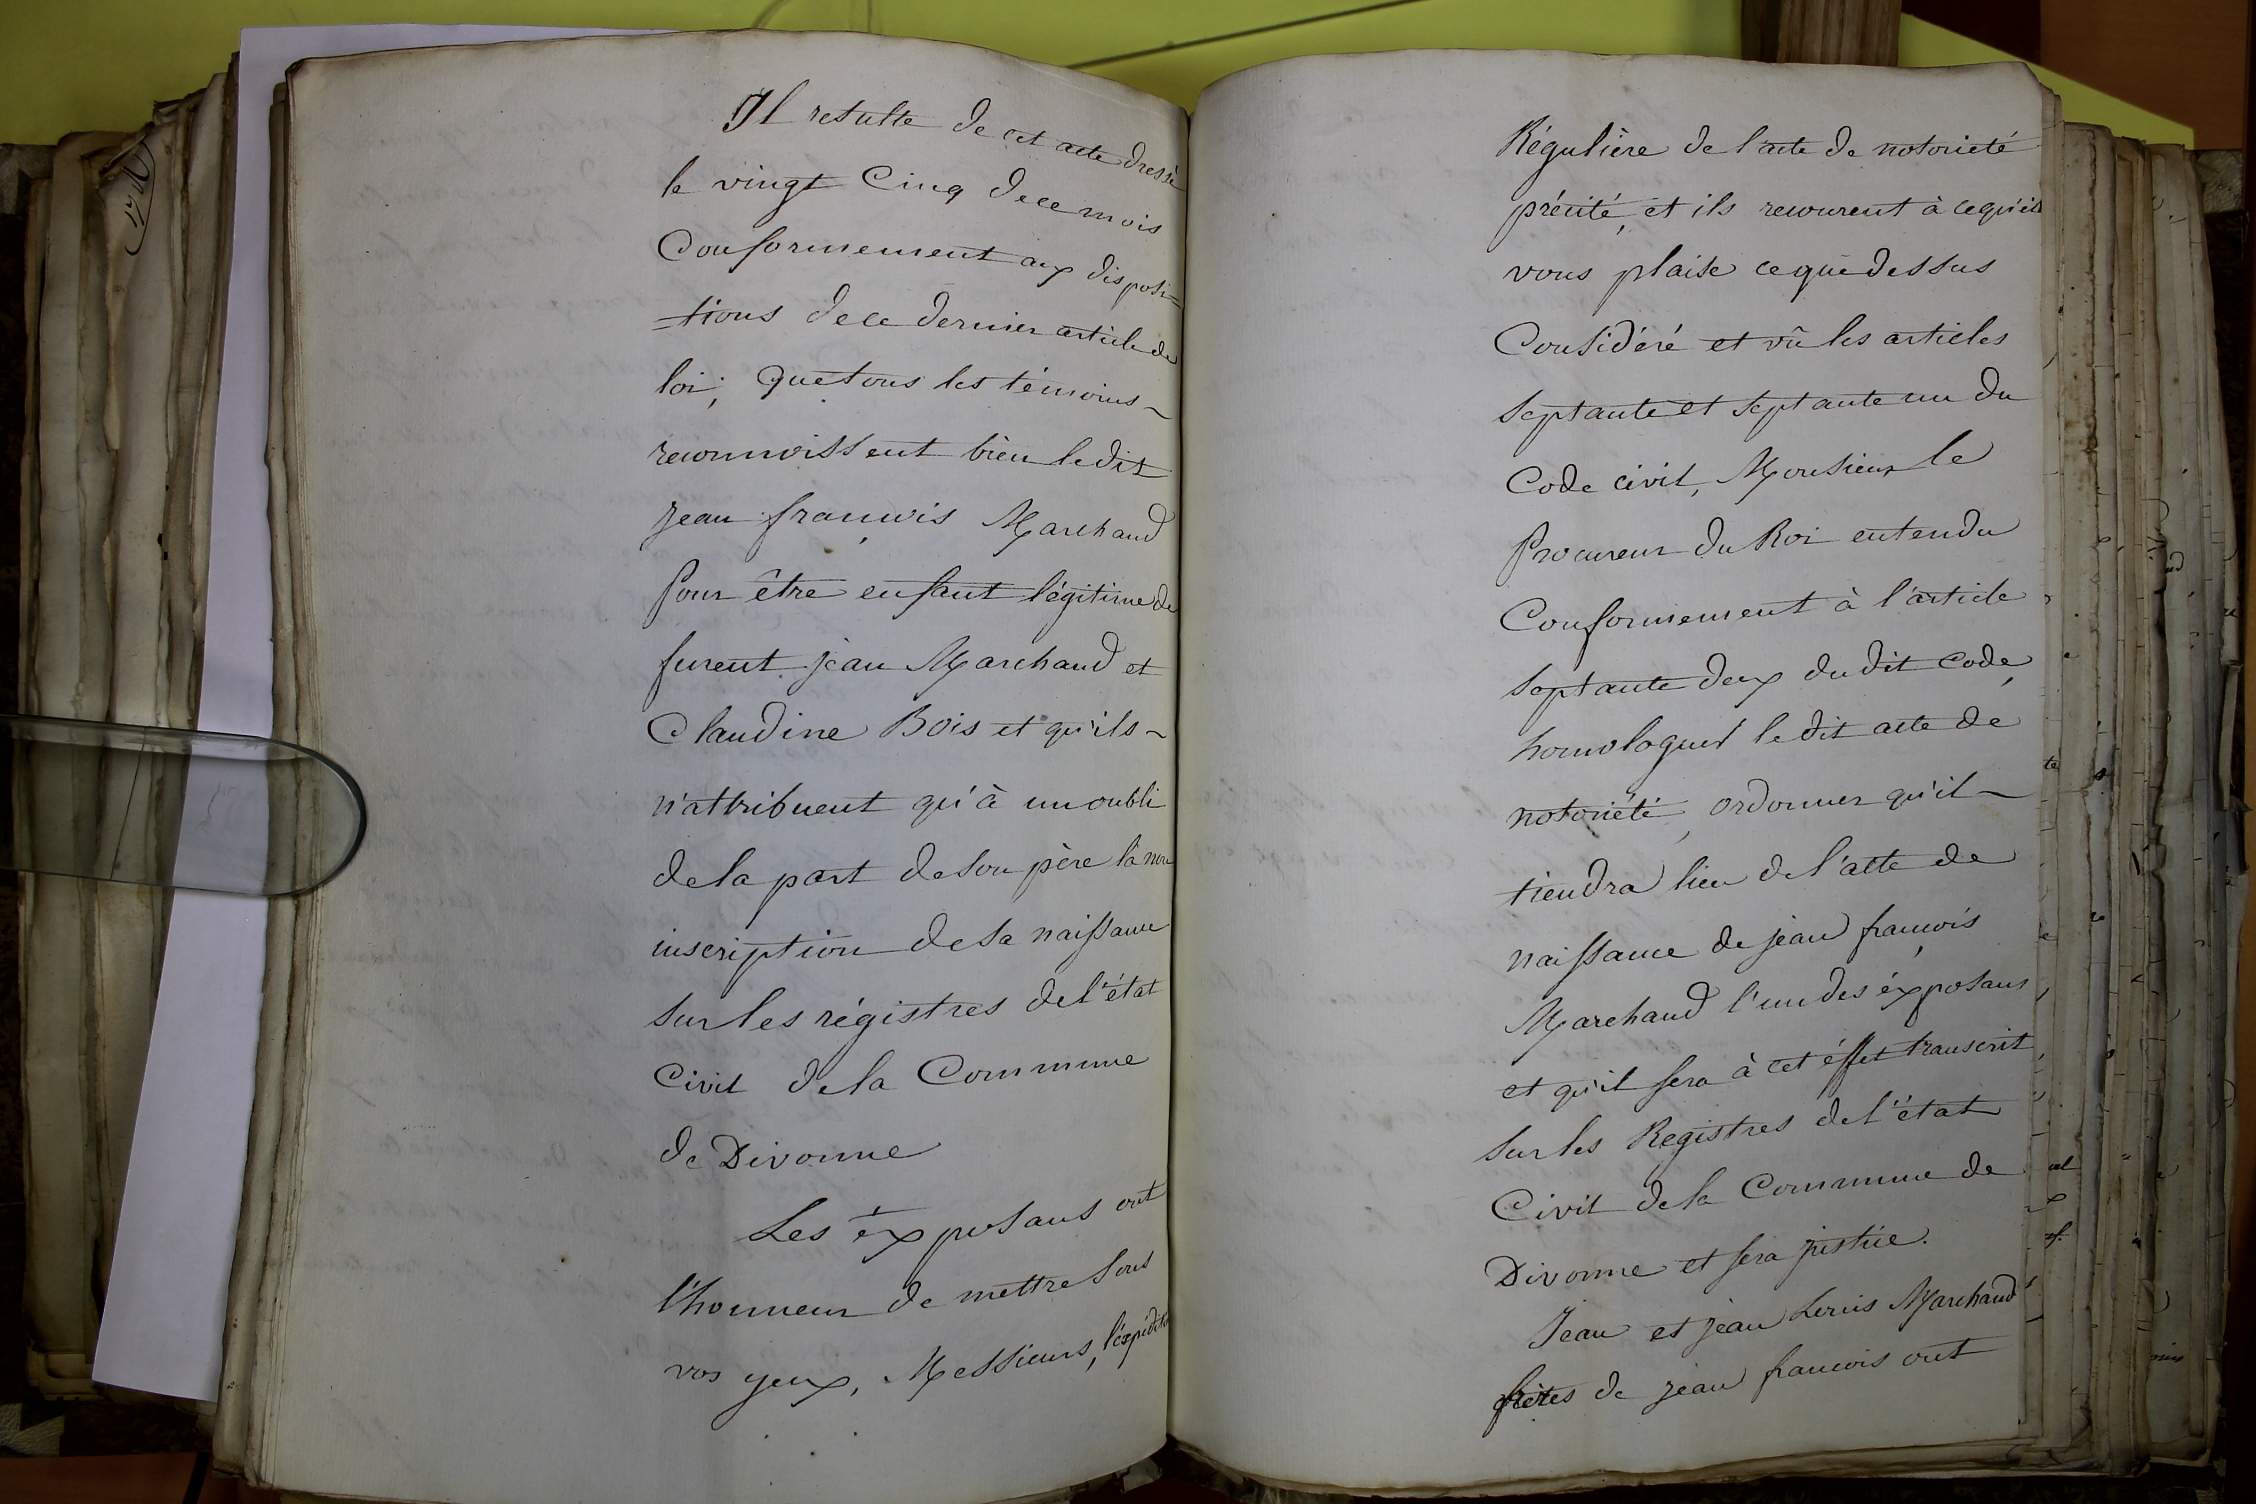 Il resulte de cet acte dressé
le vingt Cinq de ce mois
Conformement aux disposi=
=tions de ce dernier article de
loi; que tous les témoins
reconnoissent bien le dit
jean françois Marchand
pour être enfant légitime de
furent jean Marchand et
Claudine Bois et qu'ils
n'attribuent qu'à un oubli
de la part de son père la non
inscription de sa naissance
sur les régistres de l'état
Civil de la Commune
de Divonne
Les éxposans ont
l'honneur de mettre sous
vos yeux, Messieurs, l'éxpédition
Régulière de l'acte de notorieté
précité, et ils recourent à ce qu'il
vous plaise ce que dessus
Considéré et vû les articles
septante et septante un du
Code civil, Monsieur le
Procureur du Roi entendu
Conformement à l'article
septante deux du dit Code,
homologuer le dit acte de
notoriété, ordonner qu'il
tiendra lieu de l'acte de
naissance de jean françois
Marchand l'un des éxposans
et qu'il sera à cet éffet transcrit
sur les Registres de l'état
Civil de la Commune de
Divonne et sera justice.
Jean et jean Louis Marchand
frères de jean francois ont